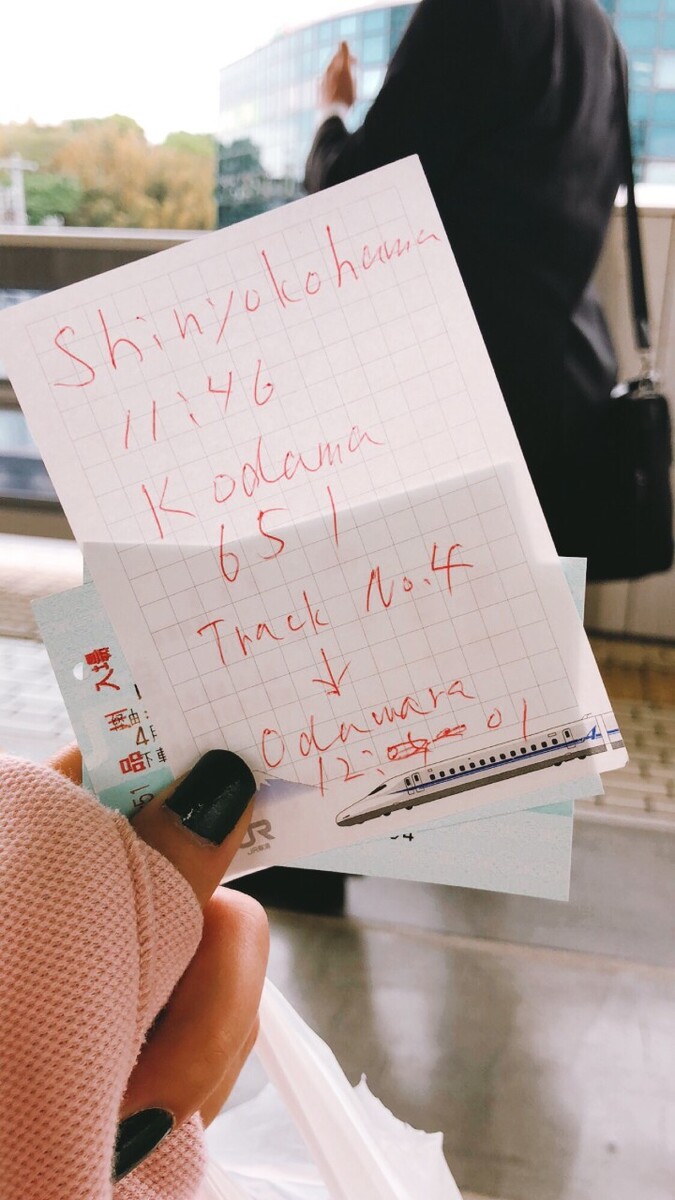 Shinyokohama
11:46
Kodama
651
Track No.4
↓
Odawara
12:01
JR
JR東海
入場
品
4月
51